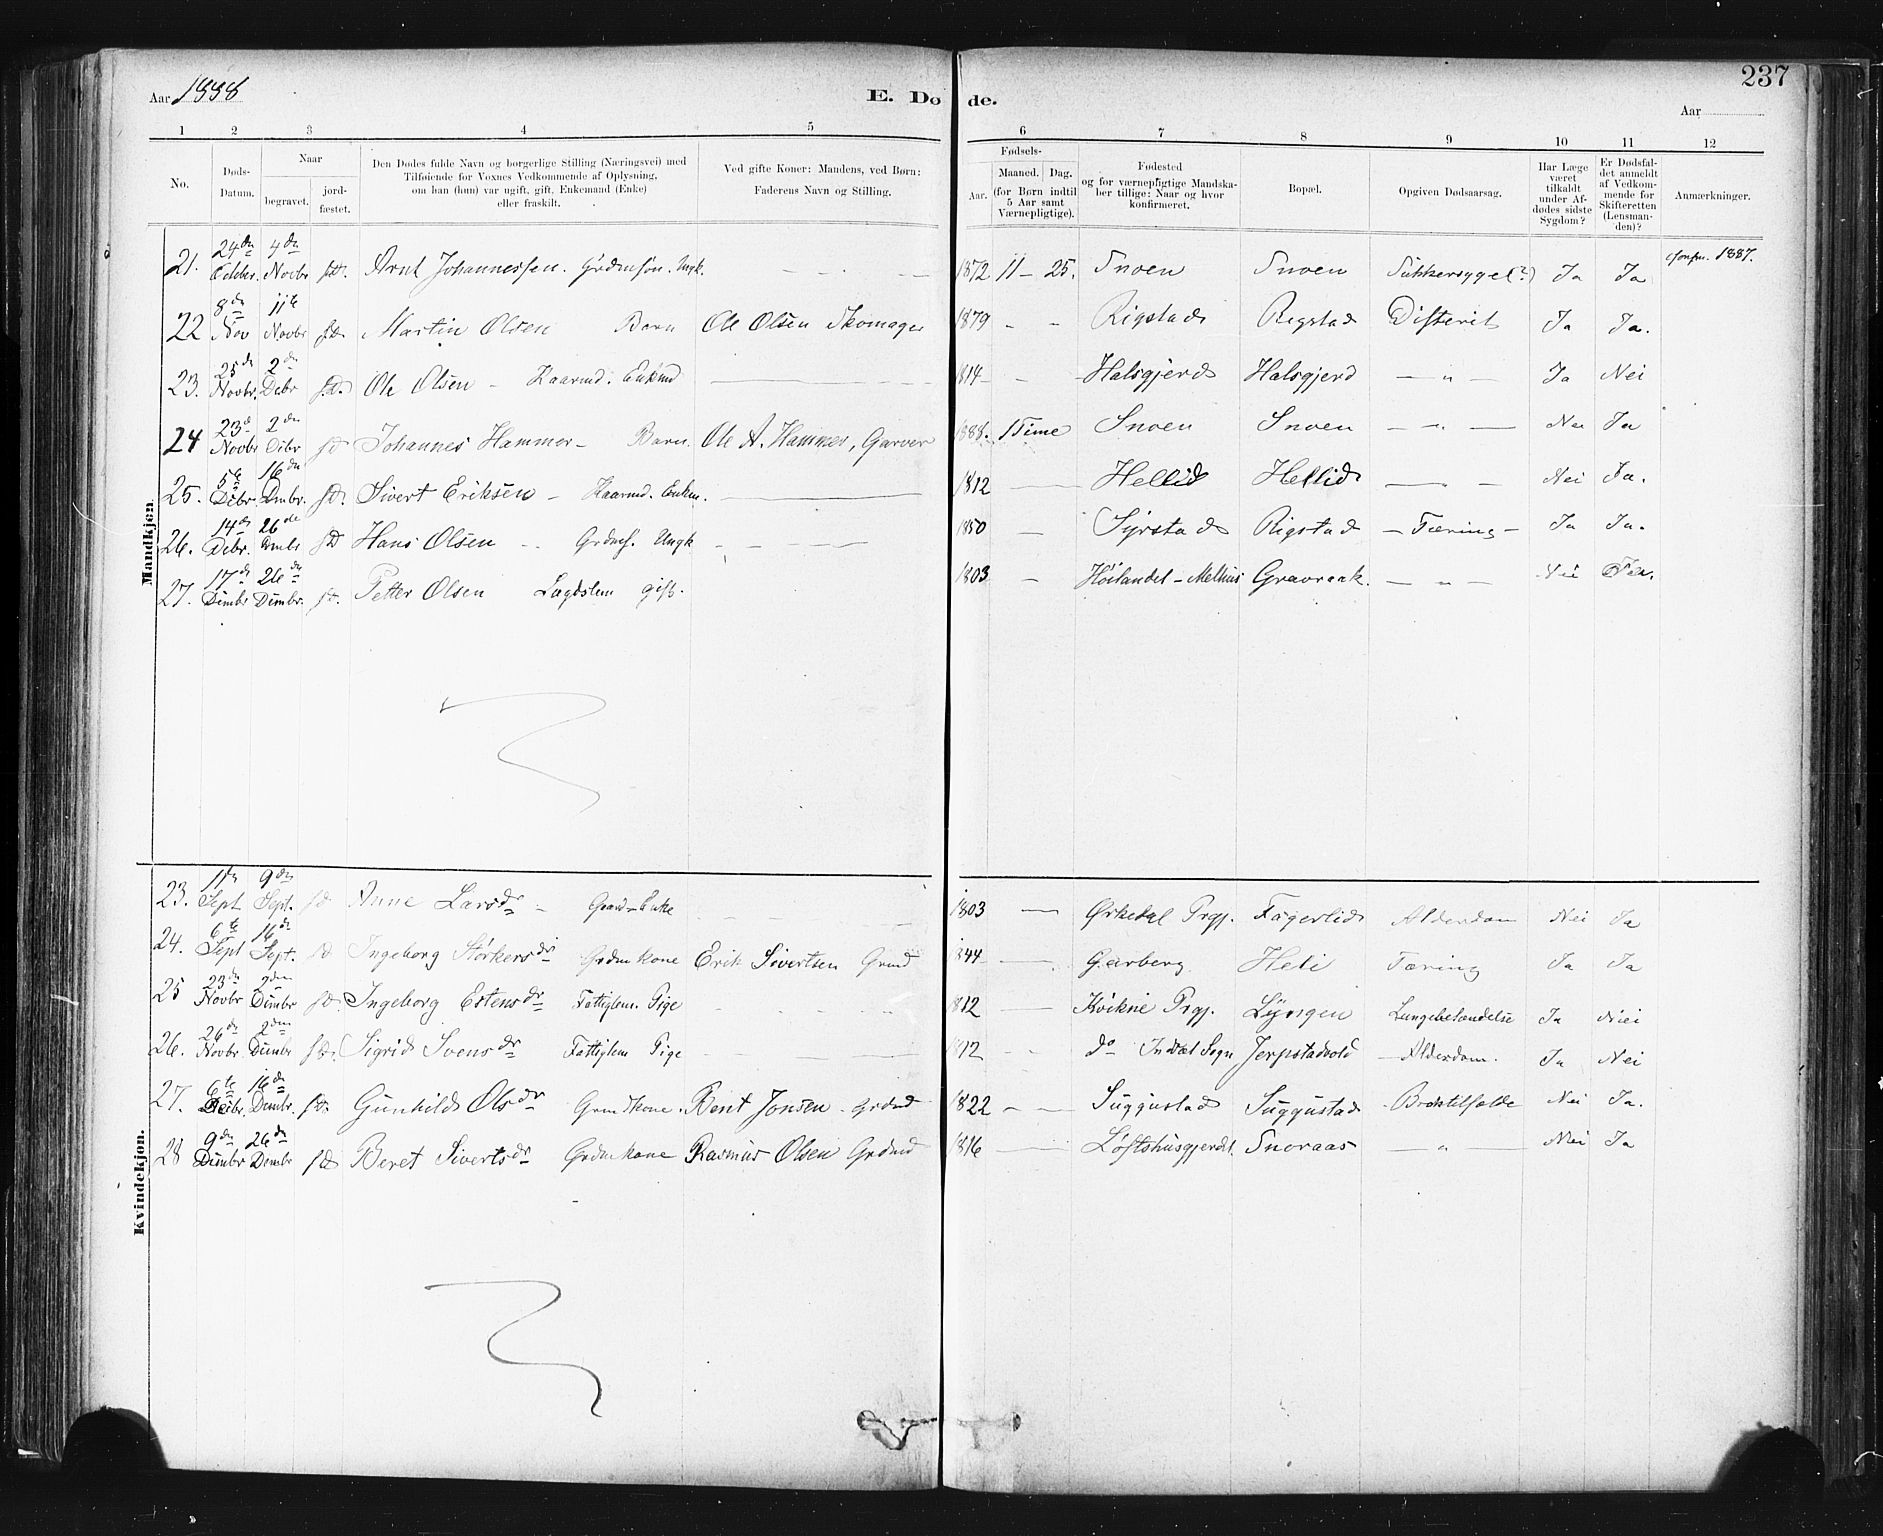 Aar 1888
E. Dø de.
237
Aar
1 2 3 4 5 6 7 8 9 10 11 12
No.
Døds-Datum.
Naar
begravet.
jord-fæstet.
Den Dødes fulde Navn og borgerlige Stilling (Næringsvei) med
Tilføiende for Voxnes Vedkommende af Oplysning,
om han (hun) var ugift, gift, Enkemand (Enke)
eller fraskilt.
Ved gifte Koner: Mandens, ved Børn:
Faderens Navn og Stilling.
Fødsels-
Aar. Maaned. Dag.
(for Børn indtil
5 Aar samt
Værnepligtige).
Fødested
og for værnepligtige Mandska-
ber tillige: Naar og hvor
konfirmeret.
Bopæl.
Opgiven Dødsaarsag.
Har Læge
været
tilkaldt
under Af-
dødes sidste
Sygdom?
Er Dødsfal-
det anmeldt
af Vedkom-
mende for
Skifteretten
(Lensman-
den)?
Anmærkninger.
Mandkjøn
21. 24de Octbr. 4de Novbr Arnt Johannessen. Grdmsøn. Ungk. 1872 11 - 25. Snoen Snoen Sukkersyge (?) Ja Ja 1887.
22 8de Nov 11te Novbr Martin Olsen Barn Ole Olsen Skomager 1879 - - Rigstad Rigstad Difterit Ja Ja.
23. 25de Novbr. 2de Debr Ole Olsen - Kaarmd. Enkmd 1814 - - Halsgjerd Halsgjerd — " — Ja Nei
24 23de Novbr 2den Dibr Johannes Hammer - Barn. Ole A. Hammer, Garver 1888. 1 Time Snoen Snoen — " — Nei Ja
25. 5te Debr. 16de Dmbr. Sivert Eriksen - Kaarmd. Enkm. 1812 — Hellid Hellid — " — Nei Ja.
26. 14de Debr. 26de Dmbr Hans Olsen - Grdmsf. Ungk - 1850 — Syrstad Rigstad - Tæring - Ja Ja.
27. 17de Dimbr 26de Dimbr. Petter Olsen Lægdslem gift. 1803 — Höilandet - Melhus Gravraak. — " — Nei Ja.
Kvindekjøn.
23. Sept. 9de Sept. Anne Larsdr - Enke 1803 — Ørkedal Prgj. Fagerlid Alderdom Nei Ja
24. 6te Sept 16de Sept. Ingeborg Størkersdr Grdmkone Erik Sivertsen Grmd 1844 — Garberg Heli Tæring Ja Ja
25 23de Novbr 2den Dimbr Ingeborg Estensdr Fattiglem. Pige 1812 — Kvikne Prgj. Lyngen Lungebetændelse Ja Nei
26. 26de Novbr. 2den Dimbr Sigrid Svensdr Fattiglem Pige 1812 do Indset Sogn Jerpstadvold - Alderdom. Ja Nei
27. 6te Debr. 16de Dembr. Gunhild Olsdr Grmdkone. Berit Jonsen - Grdmd 1822 - — Suggustad Suggustad Nei Ja.
28 9de Dimbr 26de Dembr Beret Sivertsdr Grdmkone Rasmus Olsen Grdmd 1816 — Løftshusgjerdt. Snoraas — " — Nei Ja